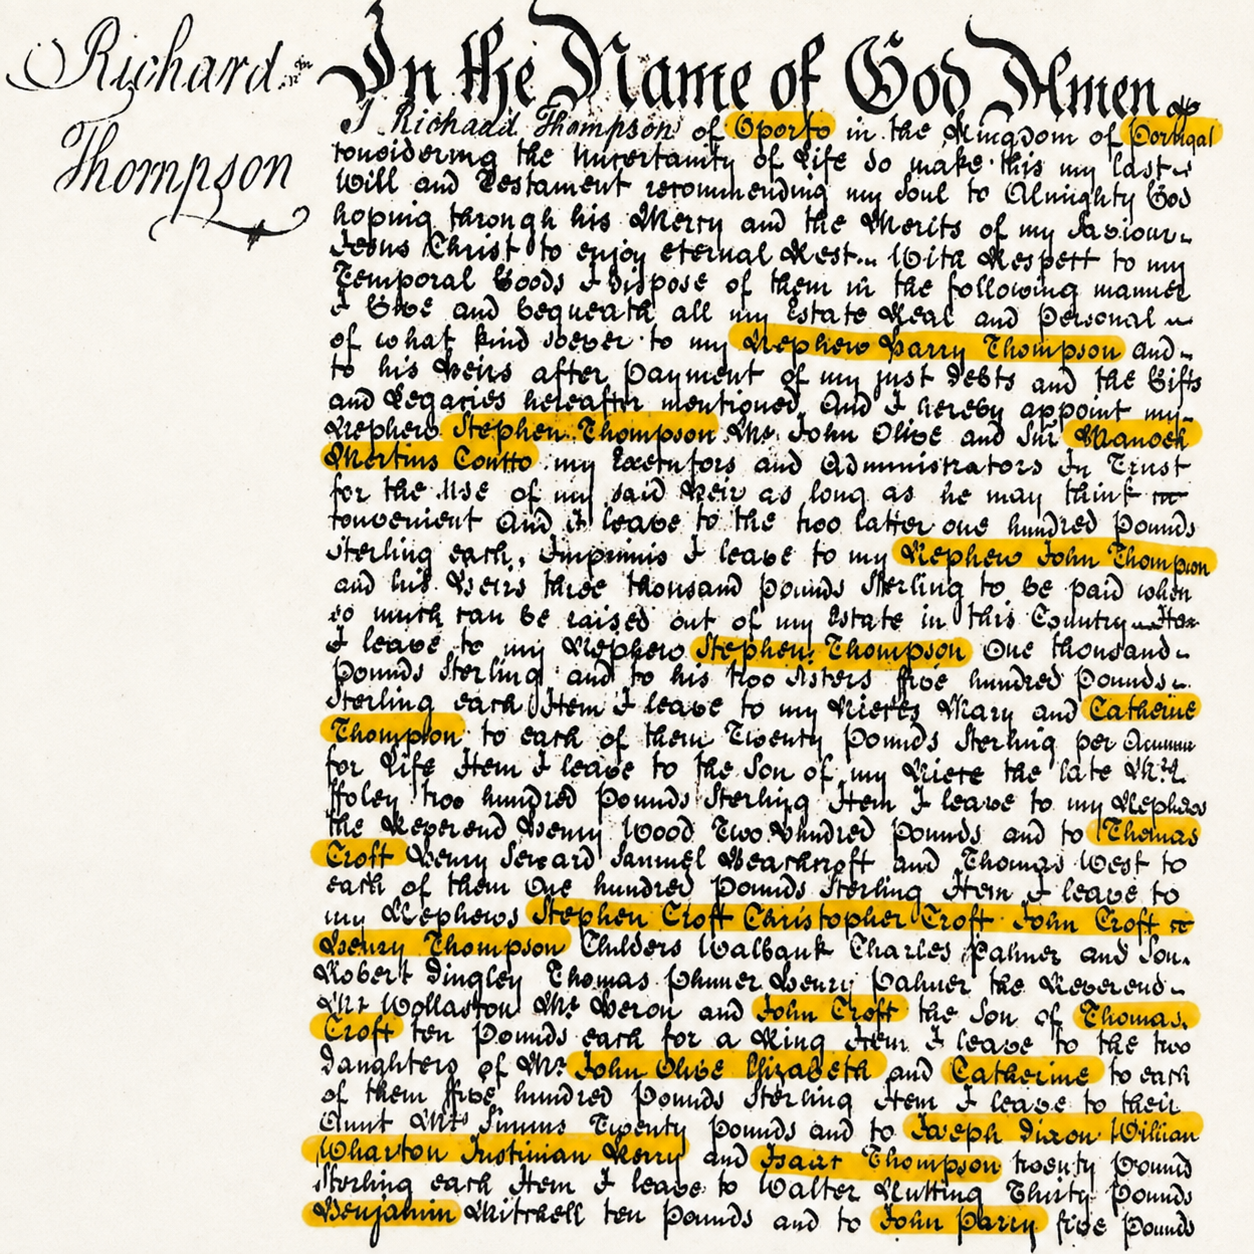 Richard
Thompson
In the Name of God Amen
I Richard Thompson of Oporto in the Kingdom of Portugal
considering the Uncertainty of Life do make this my last
Will and Testament recommending my Soul to Almighty God
hoping through his Mercy and the Merits of my Saviour
Jesus Christ to enjoy eternal Rest With Respect to my
Temporal Goods I dispose of them in the following manner
I Give and bequeath all my Estate Real and Personal
of what kind soever to my Nephew Harry Thompson and
to his Heirs after payment of my just Debts and the Gifts
and Legacies hereafter mentioned And I hereby appoint my
Nephew Stephen Thompson Mr John Olive and Snr Manoel
Martins Coutto my Executors and Administrators In Trust
for the Use of my said Heir as long as he may think
convenient And I leave to the two latter one hundred Pounds
Sterling each, Imprimis I leave to my Nephew John Thompson
and his Heirs three thousand pounds Sterling to be paid when
so much can be raised out of my Estate in this Country Item
I leave to my Nephew Stephen Thompson One thousand
pounds Sterling and to his two Sisters five hundred pounds
Sterling each Item I leave to my Nieces Mary and Catherine
Thompson to each of them Twenty Pounds Sterling per Annum
for Life Item I leave to the Son of my Niece the late Mrs
ffoley two hundred pounds Sterling Item I leave to my Nephew
the Reverend Henry Wood Two Hundred Pounds and to Thomas
Croft Henry Samuel Bearcroft and Thomas West to
each of them One hundred Pounds Sterling Item I leave to
my Nephews Stephen Croft Christopher Croft John Croft
Henry Thompson Childers Walbank Charles Palmer and Son
Robert Dingley Thomas Henry Palmer the Reverend
Mr Wollaston Mr and John Croft the Son of Thomas
Croft ten Pounds each for a Ring Item I leave to the two
daughters of Mr John Olive Elizabeth and Catherine to each
of them five hundred Pounds Sterling Item I leave to their
Aunt Mrs Simms Twenty Pounds and to Joseph Dixon William
Wharton Justinian and Isaac Thompson twenty Pounds
Sterling each Item I leave to Walter Nutting Thirty Pounds
Benjamin Mitchell ten Pounds and to John Parry five Pounds